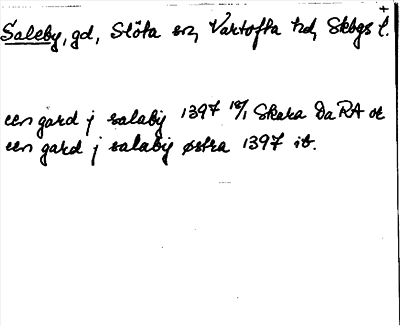 Saleby, gd, Slöta sn, Vartofta hd, Skbgs l. +
een gård j salaby 1397 18/1 Skara Da RA or
een gard j salabij østra 1397 ib.